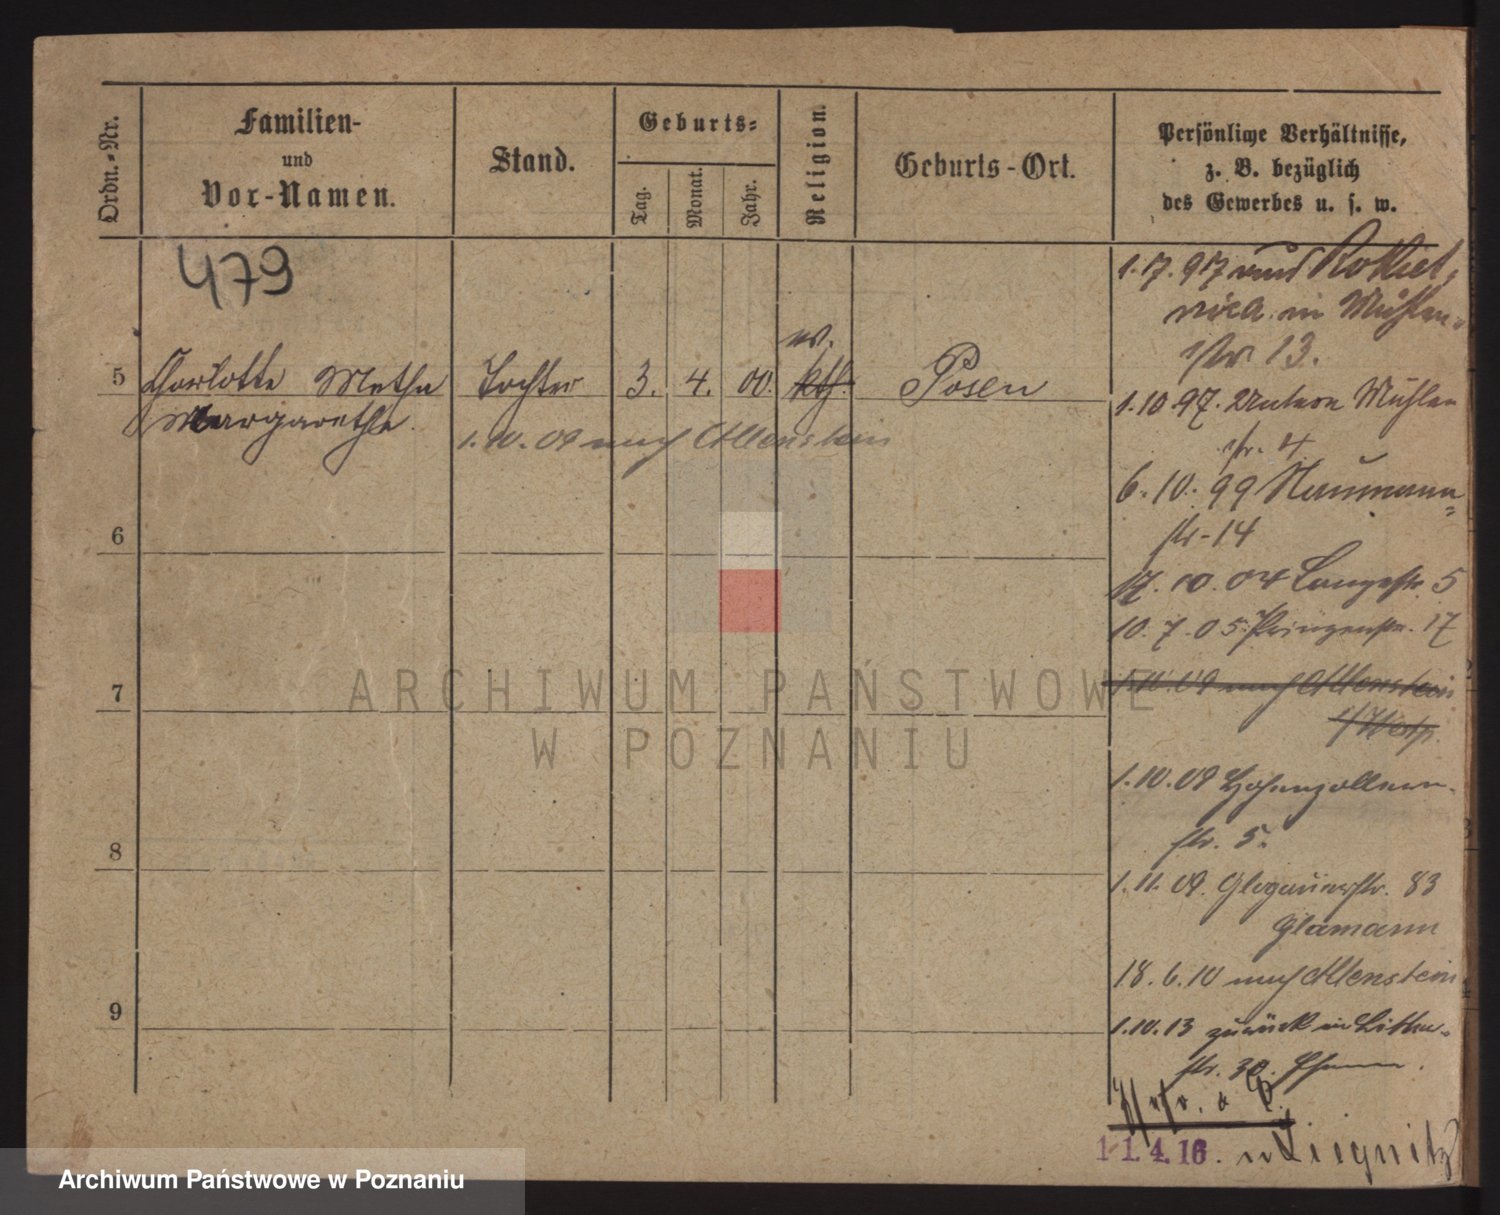 Ordn.-Nr.
Familien-
und
Vor-Namen.
Stand.
Geburts-
Tag.
Monat.
Jahr.
Religion.
Geburts-Ort.
Persönliche Verhältnisse,
z. B. bezüglich
des Gewerbes u. s. w.
479
5
Charlotte Metha
Margarethe.
Tochter
3. 4. 00.
ev.
kth.
Posen
1.10.09 nach Allenstein
6
7
8
9
1.7.97 nach
in Mühlen-
str 13.
1.10.97. Untere Mühlen
str. 4
6.10.99 Naumann
str-14
17.10.04 Langestr. 5
10.7.05. Prinzenstr. 17
1.10.09 nach Allenstein
1.10.09 Hohenzollern-
str. 5.
1.11.09. Glogauerstr. 83
Glamann
18.6.10 nach Allenstein
1.10.13 zurück in
str. 30.
11.4.16. n Liegnitz
ARCHIWUM PAŃSTWOWE
W POZNANIU
Archiwum Państwowe w Poznaniu